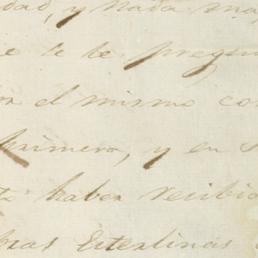 dad, y nada ma
e se le pregun
n el mismo co
primero, y en s
ta haber recibi
bras Esterlinas